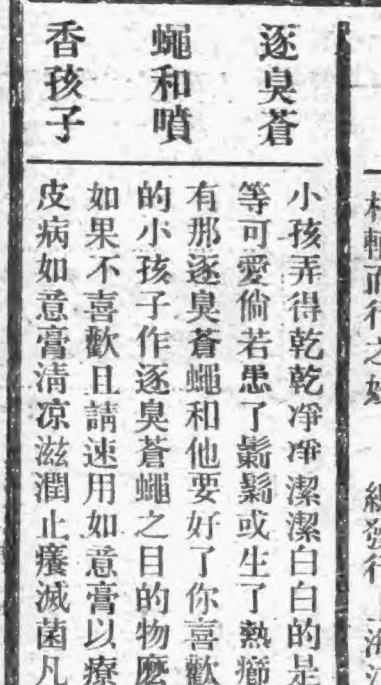 逐臭蒼
蠅和噴
香孩子
小孩弄得乾乾凈凈潔潔白白的是
等可愛倘若患了鬎鬁或生了熱癤
有那逐臭蒼蠅和他要好了你喜歡
的小孩子作逐臭蒼蠅之目的物麽
如果不喜歡且請速用如意膏以療
皮病如意膏淸凉滋潤止癢滅菌凡